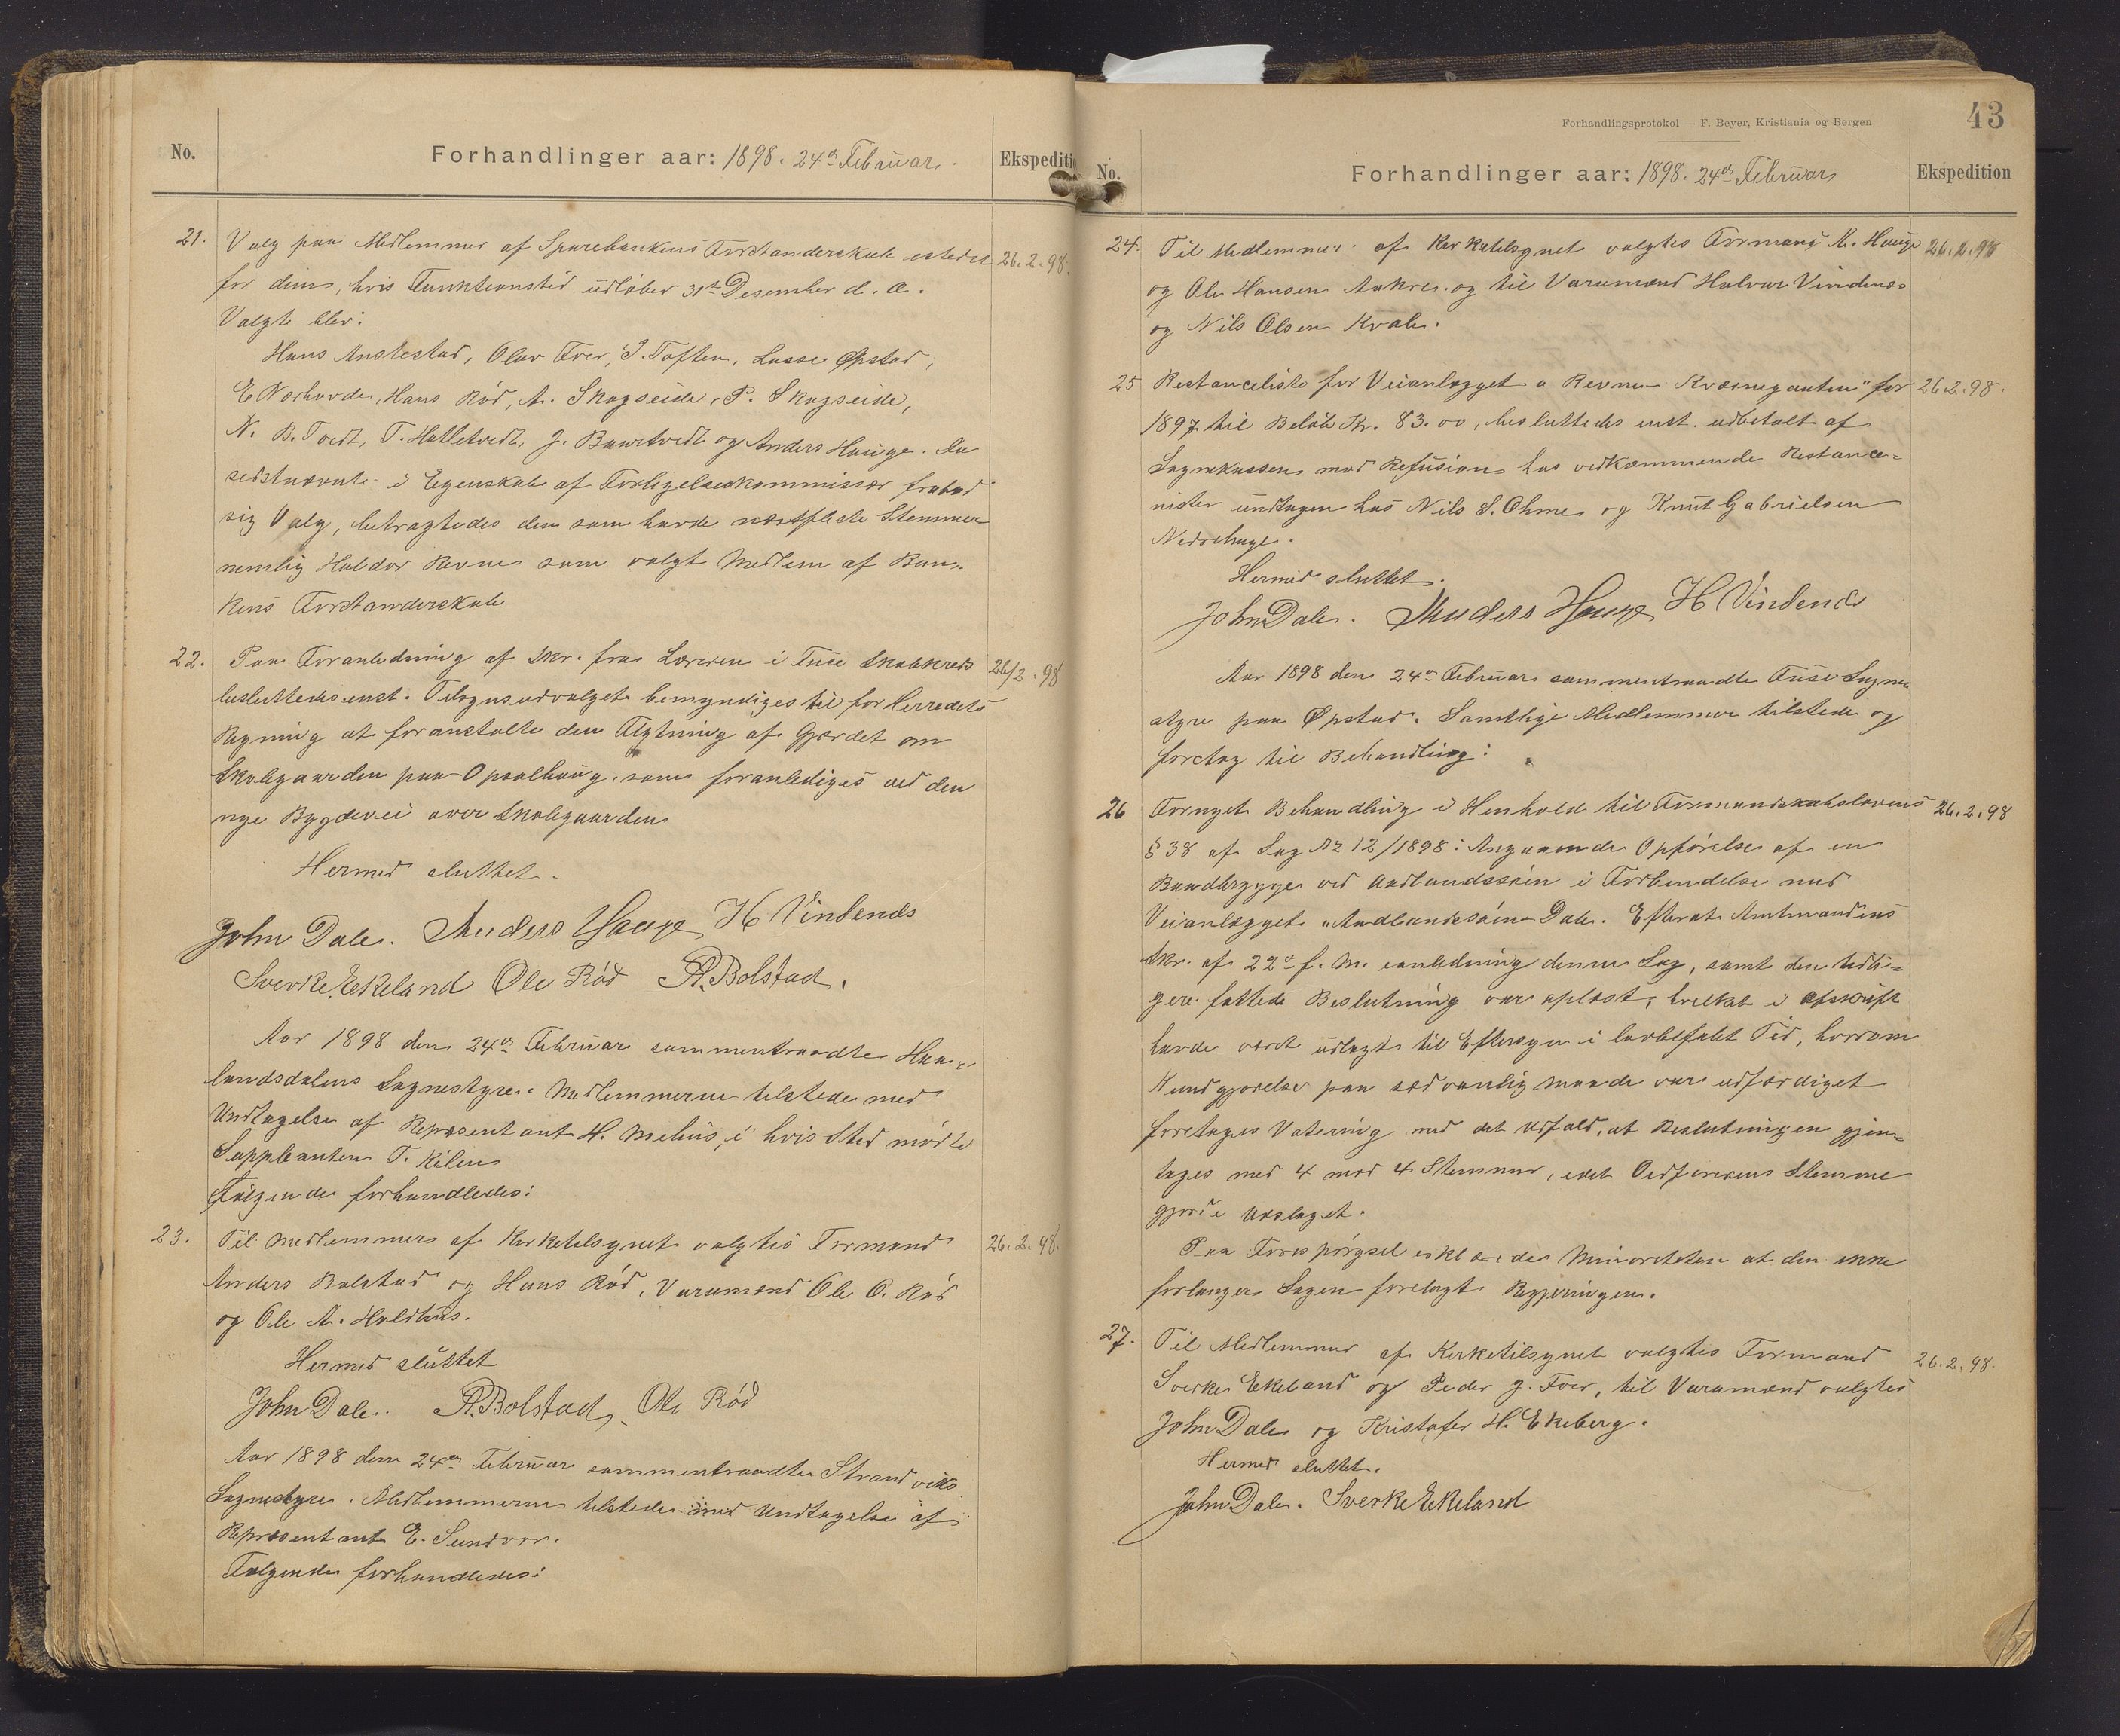 No.
Forhandlinger aar: 1898. 24de Februar.
Ekspediti
21.
Valg paa Medlemmer af Sparebankens Forstanderskab istedet
26.2.98.
for dem, hvis Funktionstid udløber 31te Desember d. a.
Valgte blev:
Hans Austestad, Olav Tver, I. Toften, Lasse Øpstad,
E Nørhovde, Hans Rød, A. Skogseide, P. Skogseide,
N. B. Tvedt, T. Hatletvedt, J. Bawrtvedt og Anders Hauge. Da
sidstnævnte i Egenskab af Forligelseskommissær frabad
sig Valg, betragtedes den som havde næstfleste Stemmer
nemlig Haldor Revne som valgt Medlem af Ban-
kens Forstanderskab
22.
Paa Foranledning af Skr. fra Læreren i Fuse Skolekreds
26/2.98
besluttedes enst. Tilsynsudvalget bemyndiges til for Herredets
Regning at foranstalte den Flytning af Gjerdet om
Skolegaarden paa Opsalhaug, som foranlediges ved den
nye Bygdevei over Skolegaarden
Hermed sluttet.
John Dale. Anders Hauge H Vindenes
Sverke Ekeland Ole Rød A. Bolstad.
Aar 1898 den 24de Februar sammentraadte Haa-
landsdalens Sognestyre. Medlemmerne tilstede med
Undtagelse af Repræsentant H. Mehus, i hvis Sted mødte
Suppleanten T. Kilen
Følgende forhandledes:
23.
Til Medlemmer af Kirketilsynet valgtes Formand
26.2.98.
Anders Bolstad og Hans Rød, Varamænd Ole O. Rød
og Ole A. Holdhus.
Hermed sluttet
John Dale. A. Bolstad, Ole Rød
Aar 1898 den 24de Februar sammentraadte Strandviks
Sognestyre. Medlemmerne tilstede med Undtagelse af
Repræsentant E. Sundvor.
Følgende forhandledes:
43
Forhandlingsprotokol — F. Beyer, Kristiania og Bergen
No.
Forhandlinger aar: 1898. 24de Februar
Ekspedition
24.
Til Medlemmer af Kirketilsynet valgtes Formand A. Hauge
26.2.98
og Ole Hansen Aakre og til Varamænd Halvor Vindenes
og Nils Olsen Kvale.
25
Restanceliste for Veianlægget "Revne - Kværnegauten" for
26.2.98.
1897 til Beløb Kr. 83.00, besluttedes enst. udbetalt af
Sognekassen mod Refusion hos vedkommende Restance-
nister undtagen hos Nils S. Ohme og Knut Gabrielsen
Nedrehuge.
Hermed sluttet.
John Dale. Anders Hauge H Vindenes
Aar 1898 den 24de Februar sammentraadte Fuse Sogne-
styre paa Øpstad. Samtlige Medlemmer tilstede og
foretog til Behandling:
26
Fornyet Behandling i Henhold til Formandskabslovens
26.2.98
§ 38 af Sag № 12/1898: Angaaende Opførelse af en
Baadbrygge ved Aadlandssøen i Forbindelse med
Veianlægget "Aadlandssøen - Dale. Efterat Amtmandens
Skr. af 22de f. M. i anledning denne Sag, samt den tidli-
gere fattede Beslutning var oplæst, hvilket i Afskrift
havde været udlagt til Eftersyn i lovbefalet Tid, hvorom
Kundgjørelse paa sædvanlig Maade var udfærdiget
foretoges Votering med det Udfald, at Beslutningen gjen-
toges med 4 mod 4 Stemmer, idet Ordførerens Stemme
gjorde Udslaget.
Paa Forespørgsel erklærede Minoriteten at den ikke
forlanger Sagen forelagt Regjeringen.
27.
Til Medlemmer af Kirketilsynet valgtes Formand
26.2.98.
Sverke Ekeland og Peder J. Tver, til Varamænd valgtes
John Dale og Kristofer H. Ekeberg.
Hermed sluttet.
John Dale. Sverke Ekeland